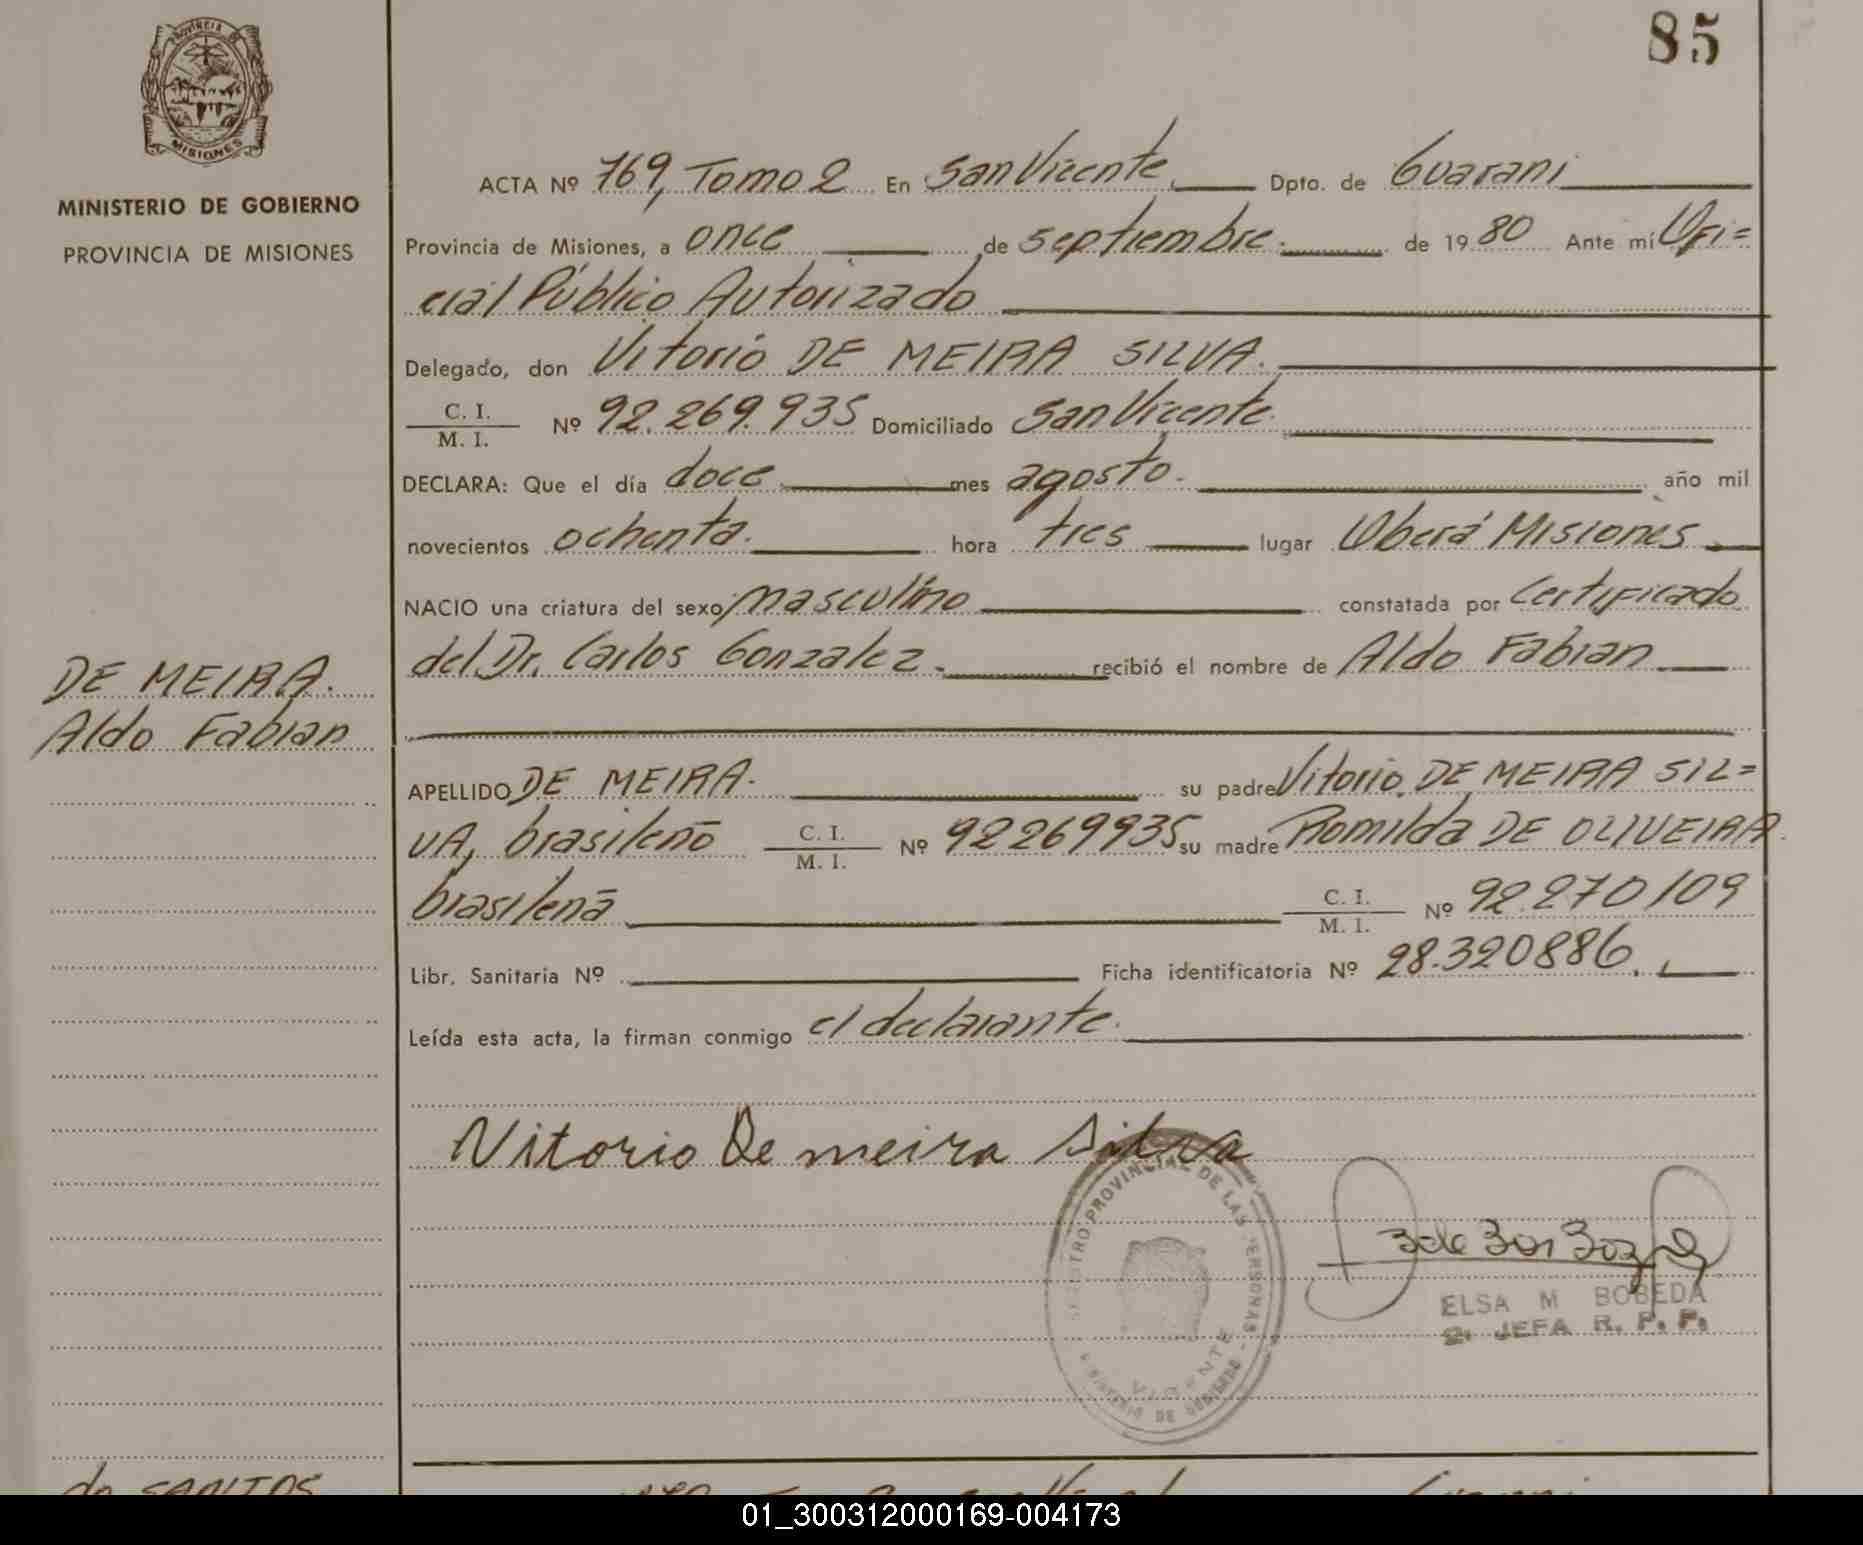 85
PROVINCIA D
MISIONES
MINISTERIO DE GOBIERNO
PROVINCIA DE MISIONES
ACTA Nº 769, Tomo 2 En San Vicente, Dpto. de Guarani
Provincia de Misiones, a once de septiembre. de 1980 Ante mí Ofi=
cial Público Autorizado
Delegado, don Vitorio DE MEIRA SILVA.
C. I.
M. I.
Nº 92.269.935 Domiciliado San Vicente.
DECLARA: Que el día doce mes agosto. año mil
novecientos ochenta. hora tres lugar Oberá Misiones
NACIO una criatura del sexo masculino constatada por Certificado
del Dr. Carlos Gonzalez. recibió el nombre de Aldo Fabian
DE MEIRA.
Aldo Fabian
APELLIDO DE MEIRA. su padre Vitorio DE MEIRA SIL=
VA, brasileño C. I. Nº 92269935 su madre Romilda DE OLIVEIRA.
M. I.
brasileña C. I. Nº 92.270109
M. I.
Libr. Sanitaria Nº Ficha identificatoria Nº 28.320886.
Leída esta acta, la firman conmigo el declarante.
Vitorio De meira Silva
REGISTRO PROVINCIAL DE LAS PERSONAS
VICENTE
MINISTERIO DE GOBIERNO
ELSA M BOBEDA
2º JEFA R. P. P.
de SANTOS
01_300312000169-004173